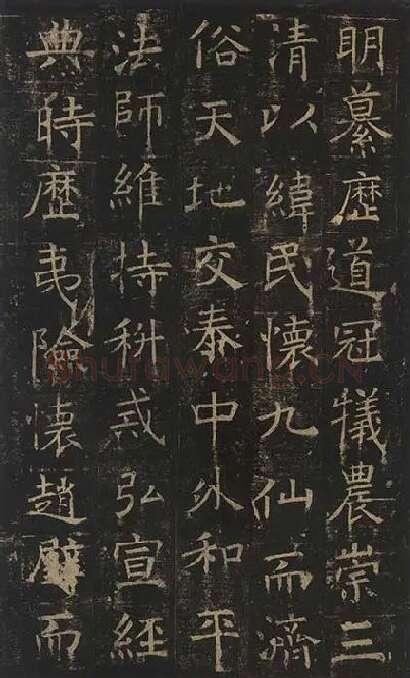 明纂歷道冠犧農崇三
清以緯民懷九仙而濟
俗天地交泰中外和平
法師維持科戒弘宣經
典時歷夷險懷趙璧而
shufawang.CN